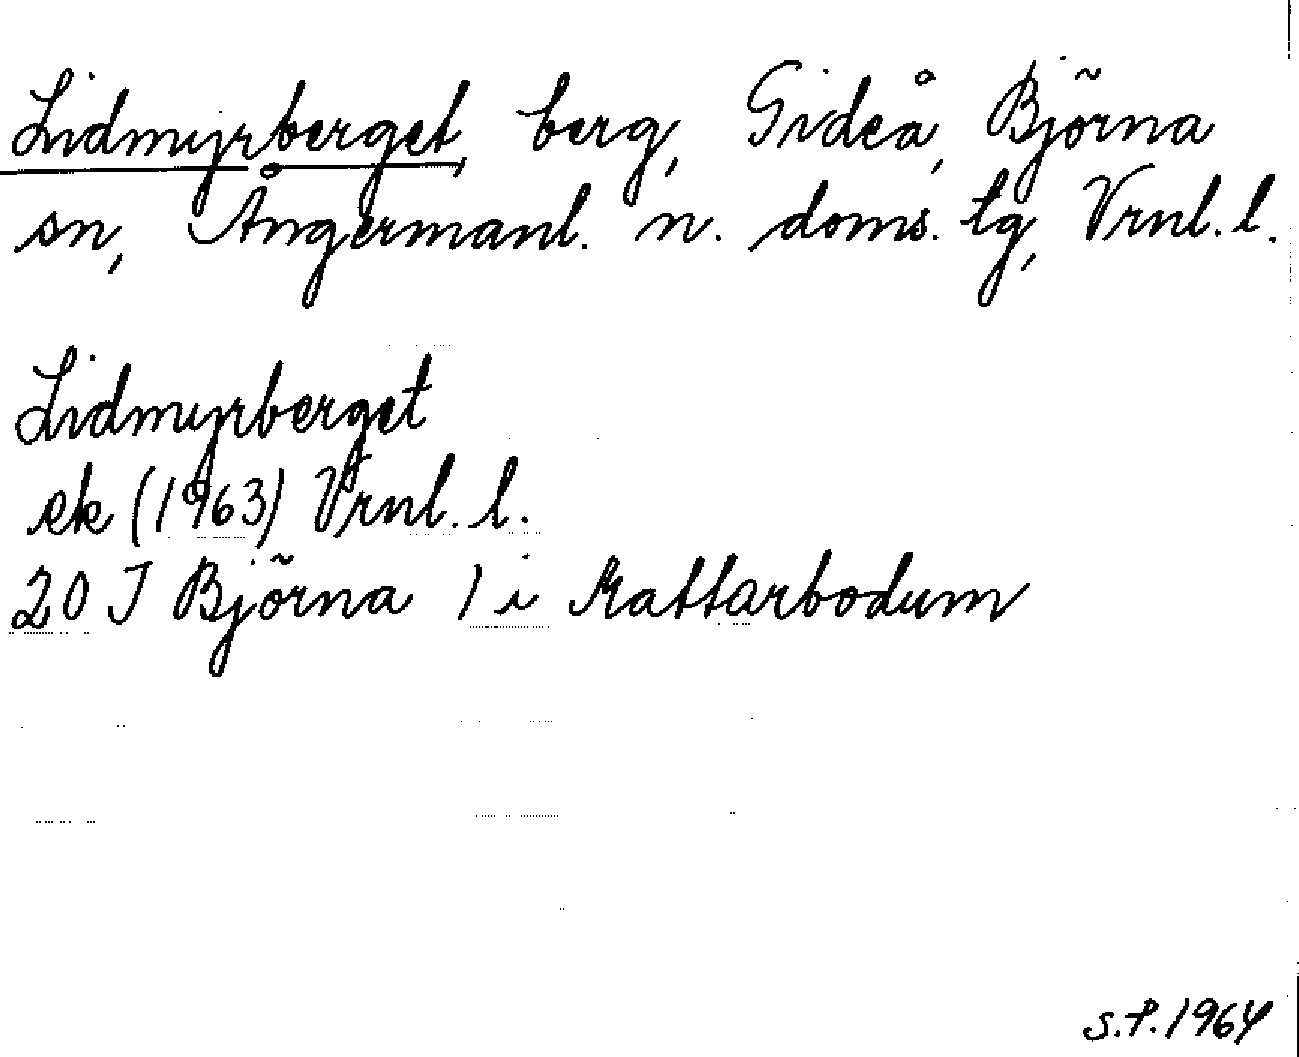 Lidmyrberget, berg, Gideå, Björna
sn, Ångermanl. n. doms. tg, Vrnl. l.
Lidmyrberget
ek (1963) Vrnl. l.
20 I Björna 1 i Kattarbodum
S.P. 1964